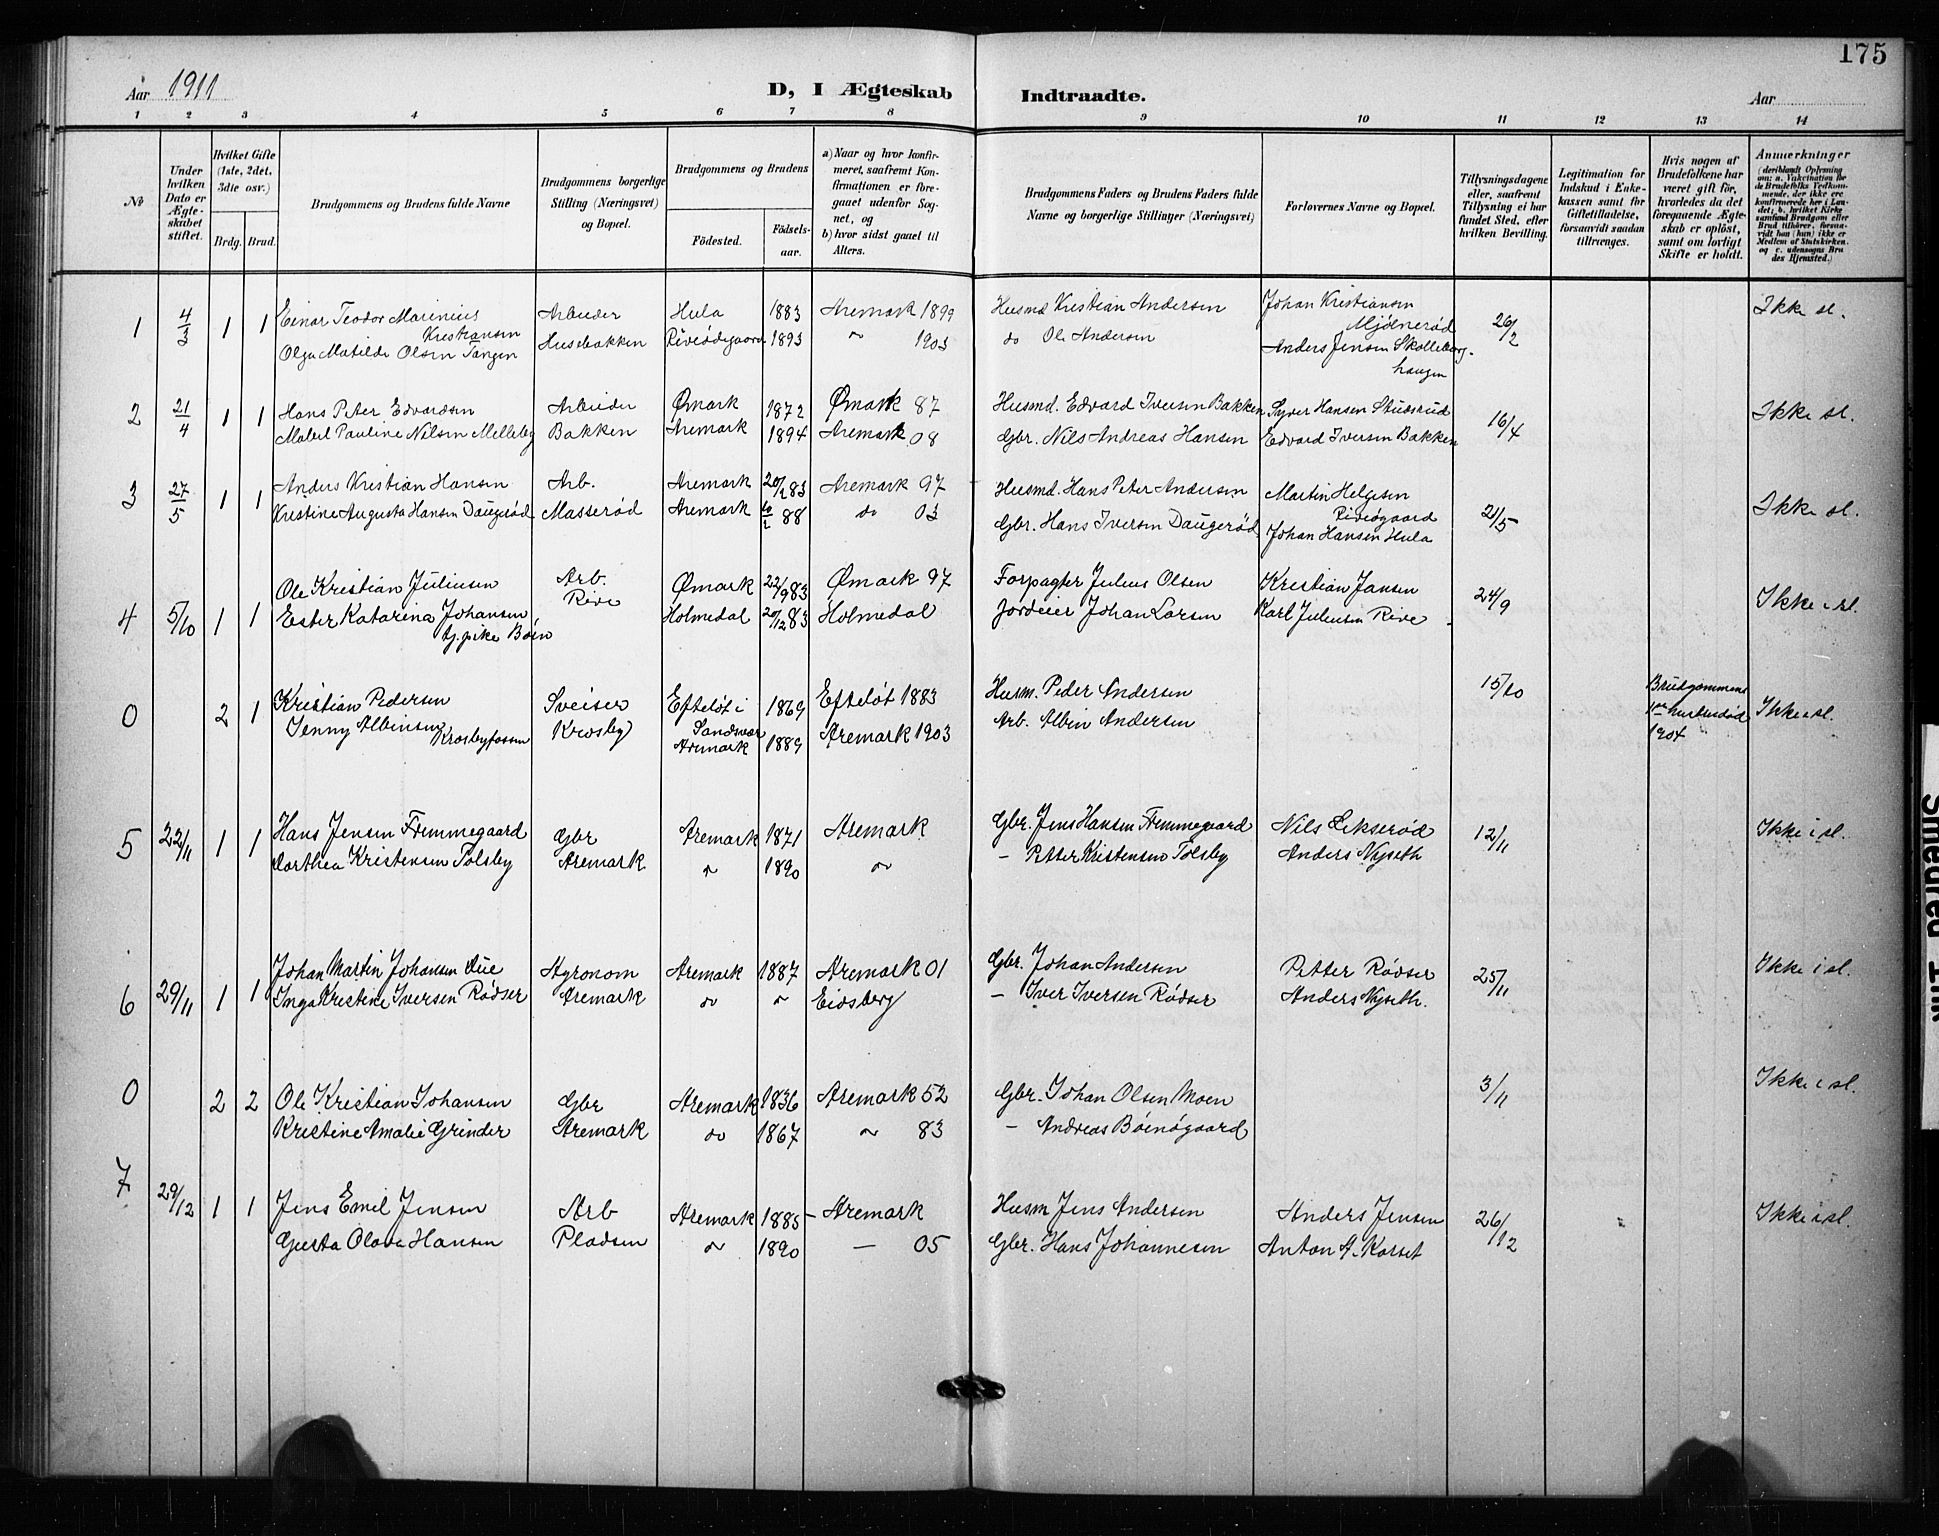 175
Aar 1911
D, I Ægteskab Indtraadte.
Aar
1 2 3 4 5 6 7 8 9 10 11 12 13 14
No
Under hvilken Dato er Ægteskabet stiftet.
Hvilket Gifte (1ste, 2det, 3die osv.)
Brdg. Brud.
Brudgommens og Brudens fulde Navne
Brudgommens borgerlige Stilling (Næringsvei) og Bopæl.
Brudgommens og Brudens
Fødested. Fødselsaar.
a) Naar og hvor konfirmeret, saafremt Konfirmationen er foregaaet udenfor Sognet, og
b) hvor sidst gaaet til Alters.
Brudgommens Faders og Brudens Faders fulde Navne og borgerlige Stillinger (Næringsvei)
Forlovernes Navne og Bopæl.
Tillysningsdagene eller, saafremt Tillysning ei har fundet Sted, efter hvilken Bevilling.
Legitimation for Indskud i Enkekassen samt for Giftetilladelse, forsaavidt saadan tiltrænges.
Hvis nogen af Brudefolkene har været gift før, hvorledes da det foregaaende Ægteskab er opløst, samt om lovligt Skifte er holdt.
Anmerkninger (deriblandt Oplysning om: a. Vakcination for de Brudefolks Vedkommende, der ikke ere konfirmerede her i Landet; b. hvilket Kirkesamfund Brudgom eller Brud tilhører, forsaavidt han (hun) ikke er Medlem af Statskirken. og c. udensogns Brudes Hjemsted.)
1 4/3 1 1 Einar Teodor Marinius Kristiansen Arbeider Hula 1883 Aremark 1899 Husmd Kristian Andersen Johan Kristiansen Mjölnerød 26/2 Ikke sl.
Olga Matilde Olsen Tangen Husebakken 1893 " 1903 do Ole Andersen Anders Jensen Skolleborghaugen
2 21/4 1 1 Hans Peter Edvardsen Arbeider Ømark 1872 Ømark 87 Husmd. Edvard Iversen Bakken Syver Hansen Studsrud 16/4 Ikke sl.
Mabel Pauline Nilsen Melleby Bakken Aremark 1894 Aremark 08 Gbr. Nils Andreas Hansen Edvard Iversen Bakken
3 27/5 1 1 Anders Kristian Hansen Arb. Aremark 83 Aremark 97 Husmd. Hans Peter Andersen Martin Helgesen 21/5 Ikke sl.
Kristine Augusta Hansen Daugerød Masserød Aremark 88 do 03 Gbr. Hans Iversen Daugerød Johan Hansen Hula
4 5/10 1 1 Ole Kristian Juliusen Arb. Ømark 22/9 83 Ømark 97 Forpagter Julius Olsen Kristian Jansen 24/9 Ikke i sl.
Ester Katarina Johansen tj.pike Böen Rive Holmedal 20/12 83 Holmedal Jordeier Johan Larsen Karl Juliusen Rive
0 2 1 Kristian Pedersen Sveiser Efteløt i Sandsvær 1869 Efteløt 1883 Husm. Peder Andersen 15/10 Brudgommens 1ste hustru død 1904 Ikke i sl.
Jenny Albinsen Krosbyfossen Krosby Aremark 1889 Aremark 1903 Arb. Albin Andersen
5 22/11 1 1 Hans Jensen Fremmegaard Gbr Aremark 1871 Aremark Gbr. Jens Hansen Fremmegaard Nils Lekserød 12/11 Ikke i sl.
Dorthea Kristensen Tolsby Aremark " 1890 " - Petter Kristensen Tolsby Anders Nyseth
6 29/11 1 1 Johan Martin Johansen Due Agronom Aremark 1887 Aremark 01 Gbr. Johan Andersen Petter Rødser 25/11 Ikke i sl.
Inga Kristine Iversen Rødser Aremark do " Eidsberg - Iver Iversen Rødser Anders Nyseth.
0 2 2 Ole Kristian Johansen Gbr Aremark 1836 Aremark 52 Gbr. Johan Olsen Moen 3/11 Ikke i sl.
Kristine Amalie Grinder Aremark do 1867 " 83 - Andreas Böensgaard
7 29/12 1 1 Jens Emil Jensen Arb Aremark 1885 - Aremark Husm Jens Andersen Anders Jensen 26/12 Ikke i sl.
Gusta Olava Hansen Pladsen " 1890 - 05 Gbr. Hans Johannesen Anton A. Korset